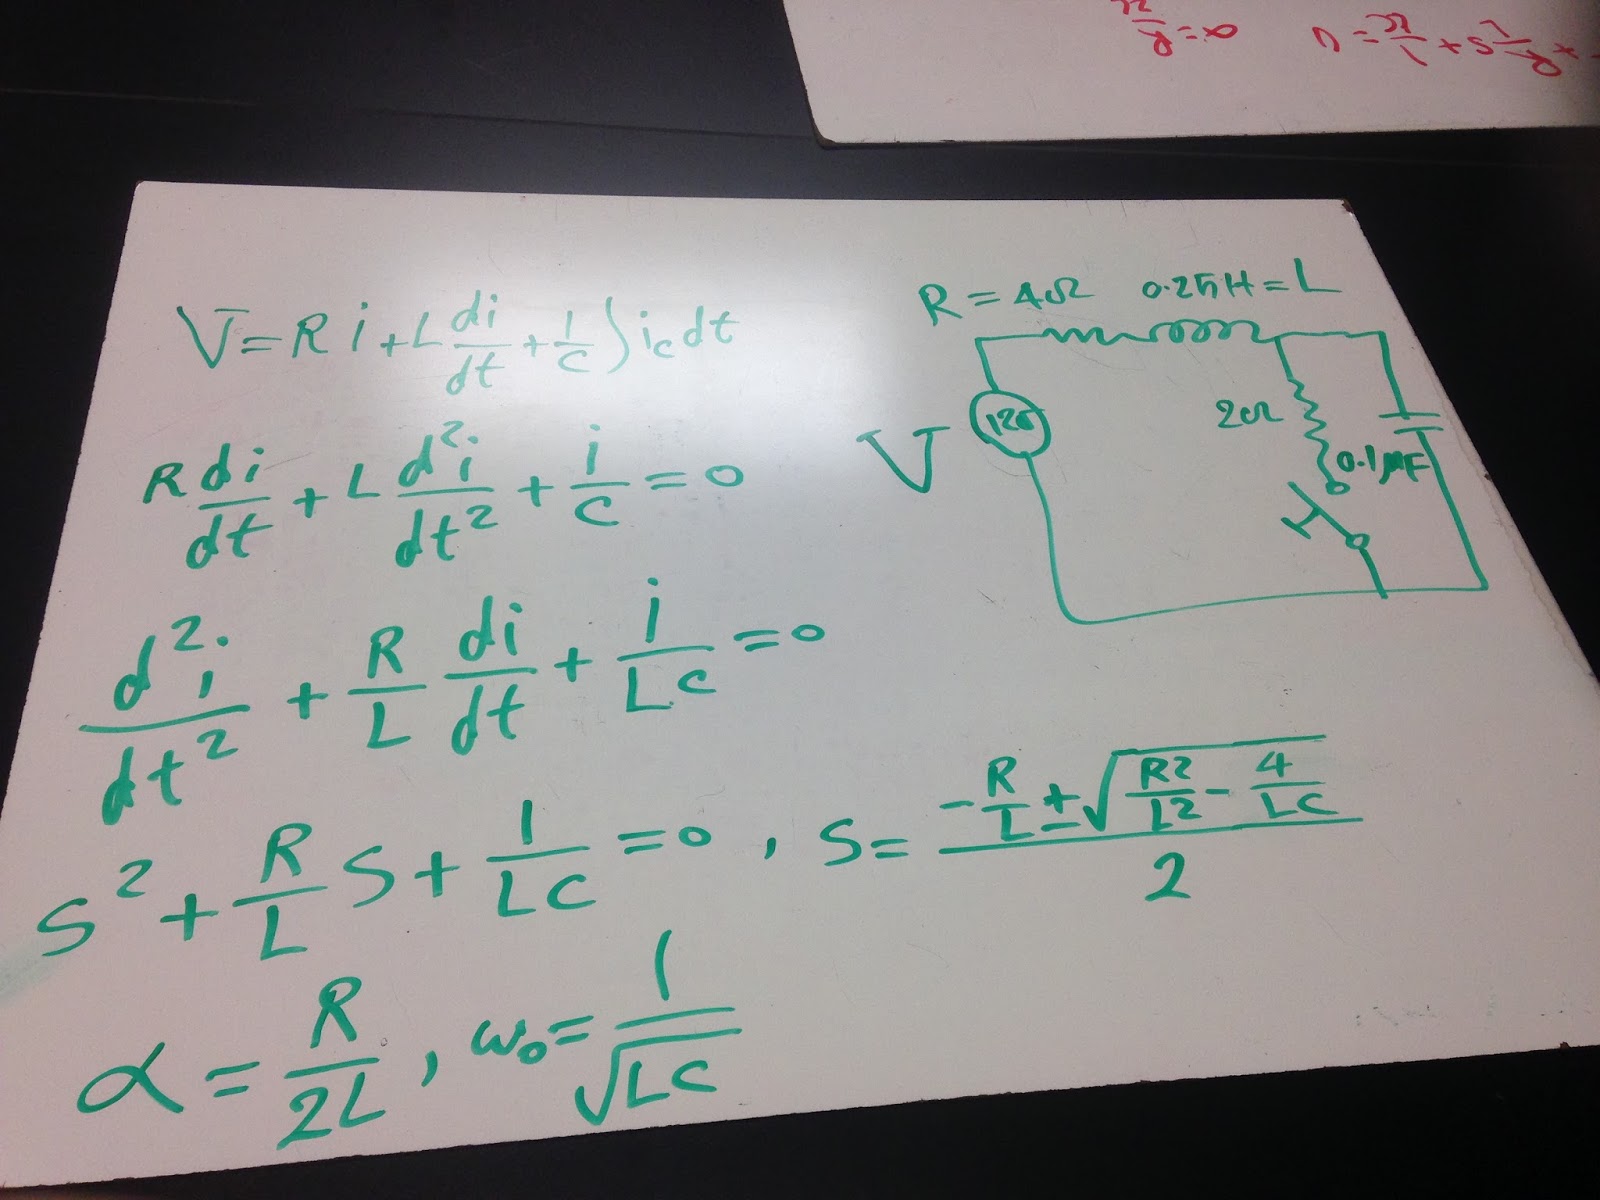 V = R i + L di/dt + 1/C ∫ i_c dt
R di/dt + L d²i/dt² + i/C = 0
d²i/dt² + R/L di/dt + i/LC = 0
s² + R/L s + 1/LC = 0 , s = (-R/L ± √(R2/L2 - 4/LC))/2
α = R/2L , ω₀ = 1/√LC
R = 4Ω 0.25H = L
V
2Ω
0.1μF